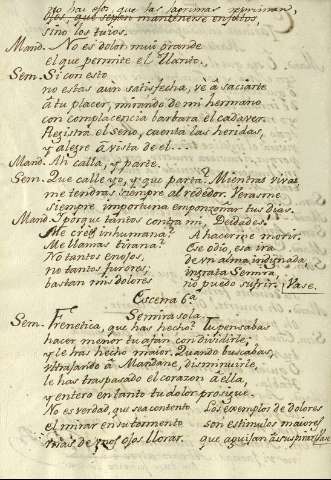 no hai ojos, que las lagrimas expriman,
ojos, que sepan mantenerse enjutos,
sino los tuios.
Mand. No es dolor mui grande
el que permite el llanto.
Sem. Si con esto
no estas aun satisfecha, vé à saciarte
à tu placer, mirando de mi hermano
con complacencia barbara el cadaver.
Registra el seno, cuenta las heridas,
y alegre à vista de el...
Mand. Ah calla, y parte.
Sem. Que calle yo, y que parta? Mientras vivas,
me tendras siempre al rededor. Verasme
siempre importuna emponzoñar tus dias.
Mand. Y porque tantos contra mi, Deidades?
Me crees inhumana?
Me llamas tirana?
No tantos enojos,
no tantos furores;
bastan mis dolores
A hacerme morir.
Ese odio, esa ira
de un alma indignada,
ingrata Semira,
no puedo sufrir. Vase.
Escena 6ª
Semira sola.
Sem. Frenetica, que has hecho? Tu pensabas
hacer menor tu afan con dividirle,
y le has hecho maior. Quando buscabas,
ultrajando à Mandane, disminuirle,
le has traspasado el corazon à ella,
y entero en tanto tu dolor prosigue.
No es verdad, que sea contento
el mirar en su tormento
mas de unos ojos llorar.
Los exemplos de dolores
son estimulos maiores,
que aguijan à suspirar. Vase